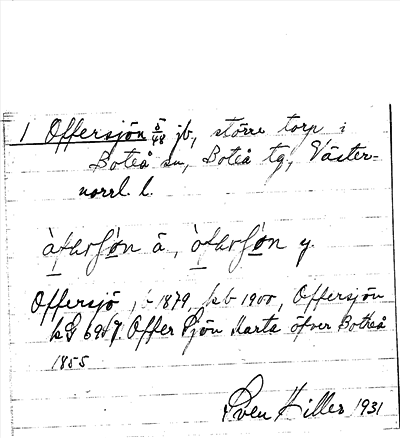 1 Offersjön 5/48 jb, större torp i
Boteå sn, Boteå tg, Väster=
norrl. l.
å, y.
Offersjö, -1879, kb 1900, Offersjön
kG Offer Sjön Karta öfver Botheå
1855
Sven Hiller 1931